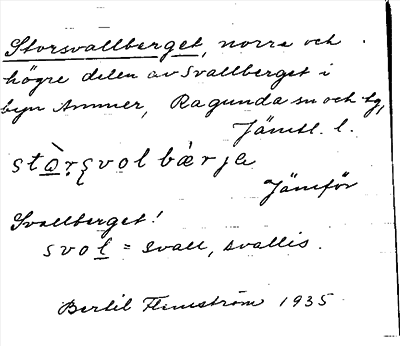 Storsvallberget, norra och
högre delen av Svallberget i
byn Ammer, Ragunda sn och tg,
Jämtl. l.
stòrsvolbærje
Jämför
Svallberget!
svol = svall, svallis.
Bertil Flemström 1935